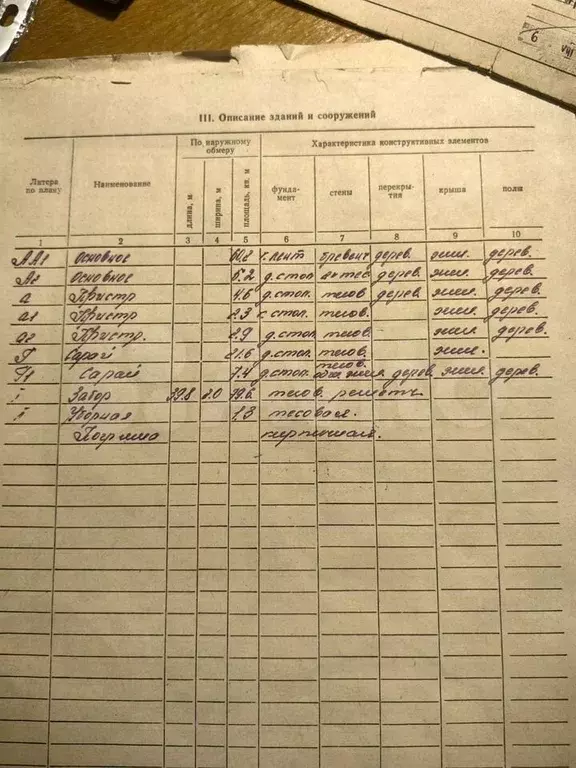 6
VIII
III. Описание зданий и сооружений
Литера по плану
Наименование
По наружному обмеру
длина, м
ширина, м
площадь, кв. м
Характеристика конструктивных элементов
фунда-
мент
стены
перекры-
тия
крыша
полы
1 2 3 4 5 6 7 8 9 10
АА1 Основное 60.8 бревенч дерев. дерев.
Основное 5.2 д.стол. дерев. дерев.
а Пристр 4.6 д.стол. тесов дерев. дерев.
а1 Пристр 2.3 тесов. дерев.
а2 Пристр. 2.9 д.стол тесов. дерев.
Г Сарай 21.6 д.стол. тесов.
Г1 Сарай 7.4 д.стол. тесов. дерев. дерев.
Забор 39.8 2.0 79.6 тесов.
Уборная 1,3 тесовая.
кирпичная.